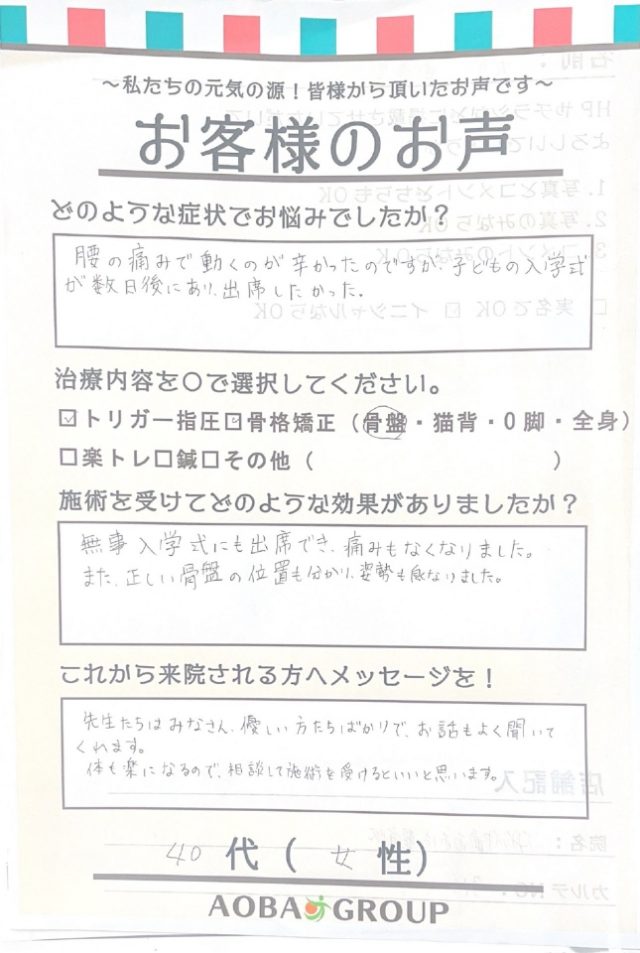 ～私たちの元気の源！皆様から頂いたお声です～
お客様のお声
どのような症状でお悩みでしたか？
腰の痛みで動くのが辛かったのですが、子どもの入学式
が数日後にあり、出席したかった。
治療内容を〇で選択してください。
☑トリガー指圧☑骨格矯正（骨盤・猫背・O脚・全身）
□楽トレ□鍼□その他（　　　）
施術を受けてどのような効果がありましたか？
無事入学式にも出席でき、痛みもなくなりました。
また、正しい骨盤の位置も分かり、姿勢も良くなりました。
これから来院される方へメッセージを！
先生たちはみなさん、優しい方たちばかりで、お話もよく聞いて
くれます。
体も楽になるので、相談して施術を受けるといいと思います。
40代（女性）
AOBA GROUP